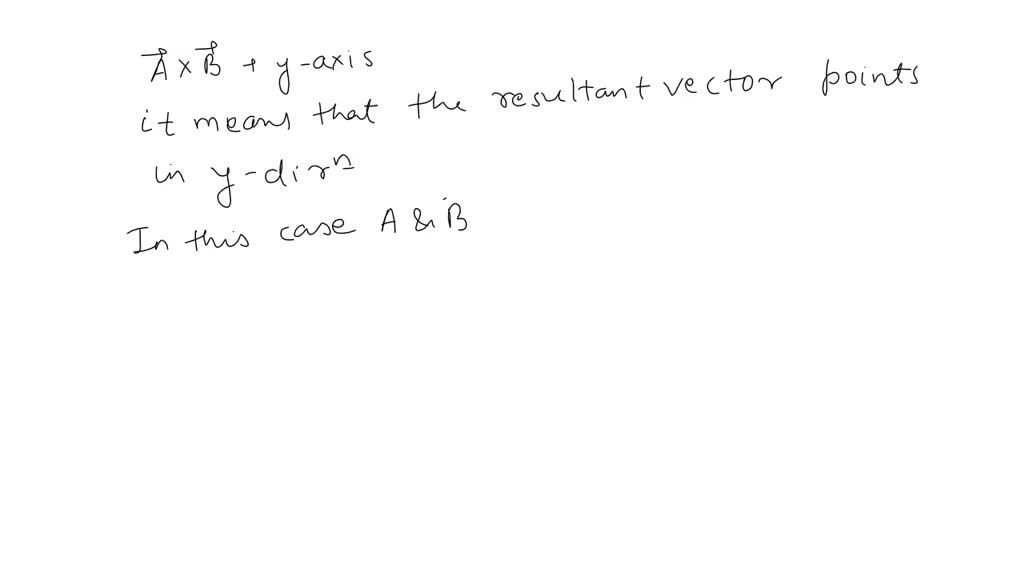 A⃗ × B⃗ + y-axis
it means that the resultant vector points
in y-dirn
In this case A & B